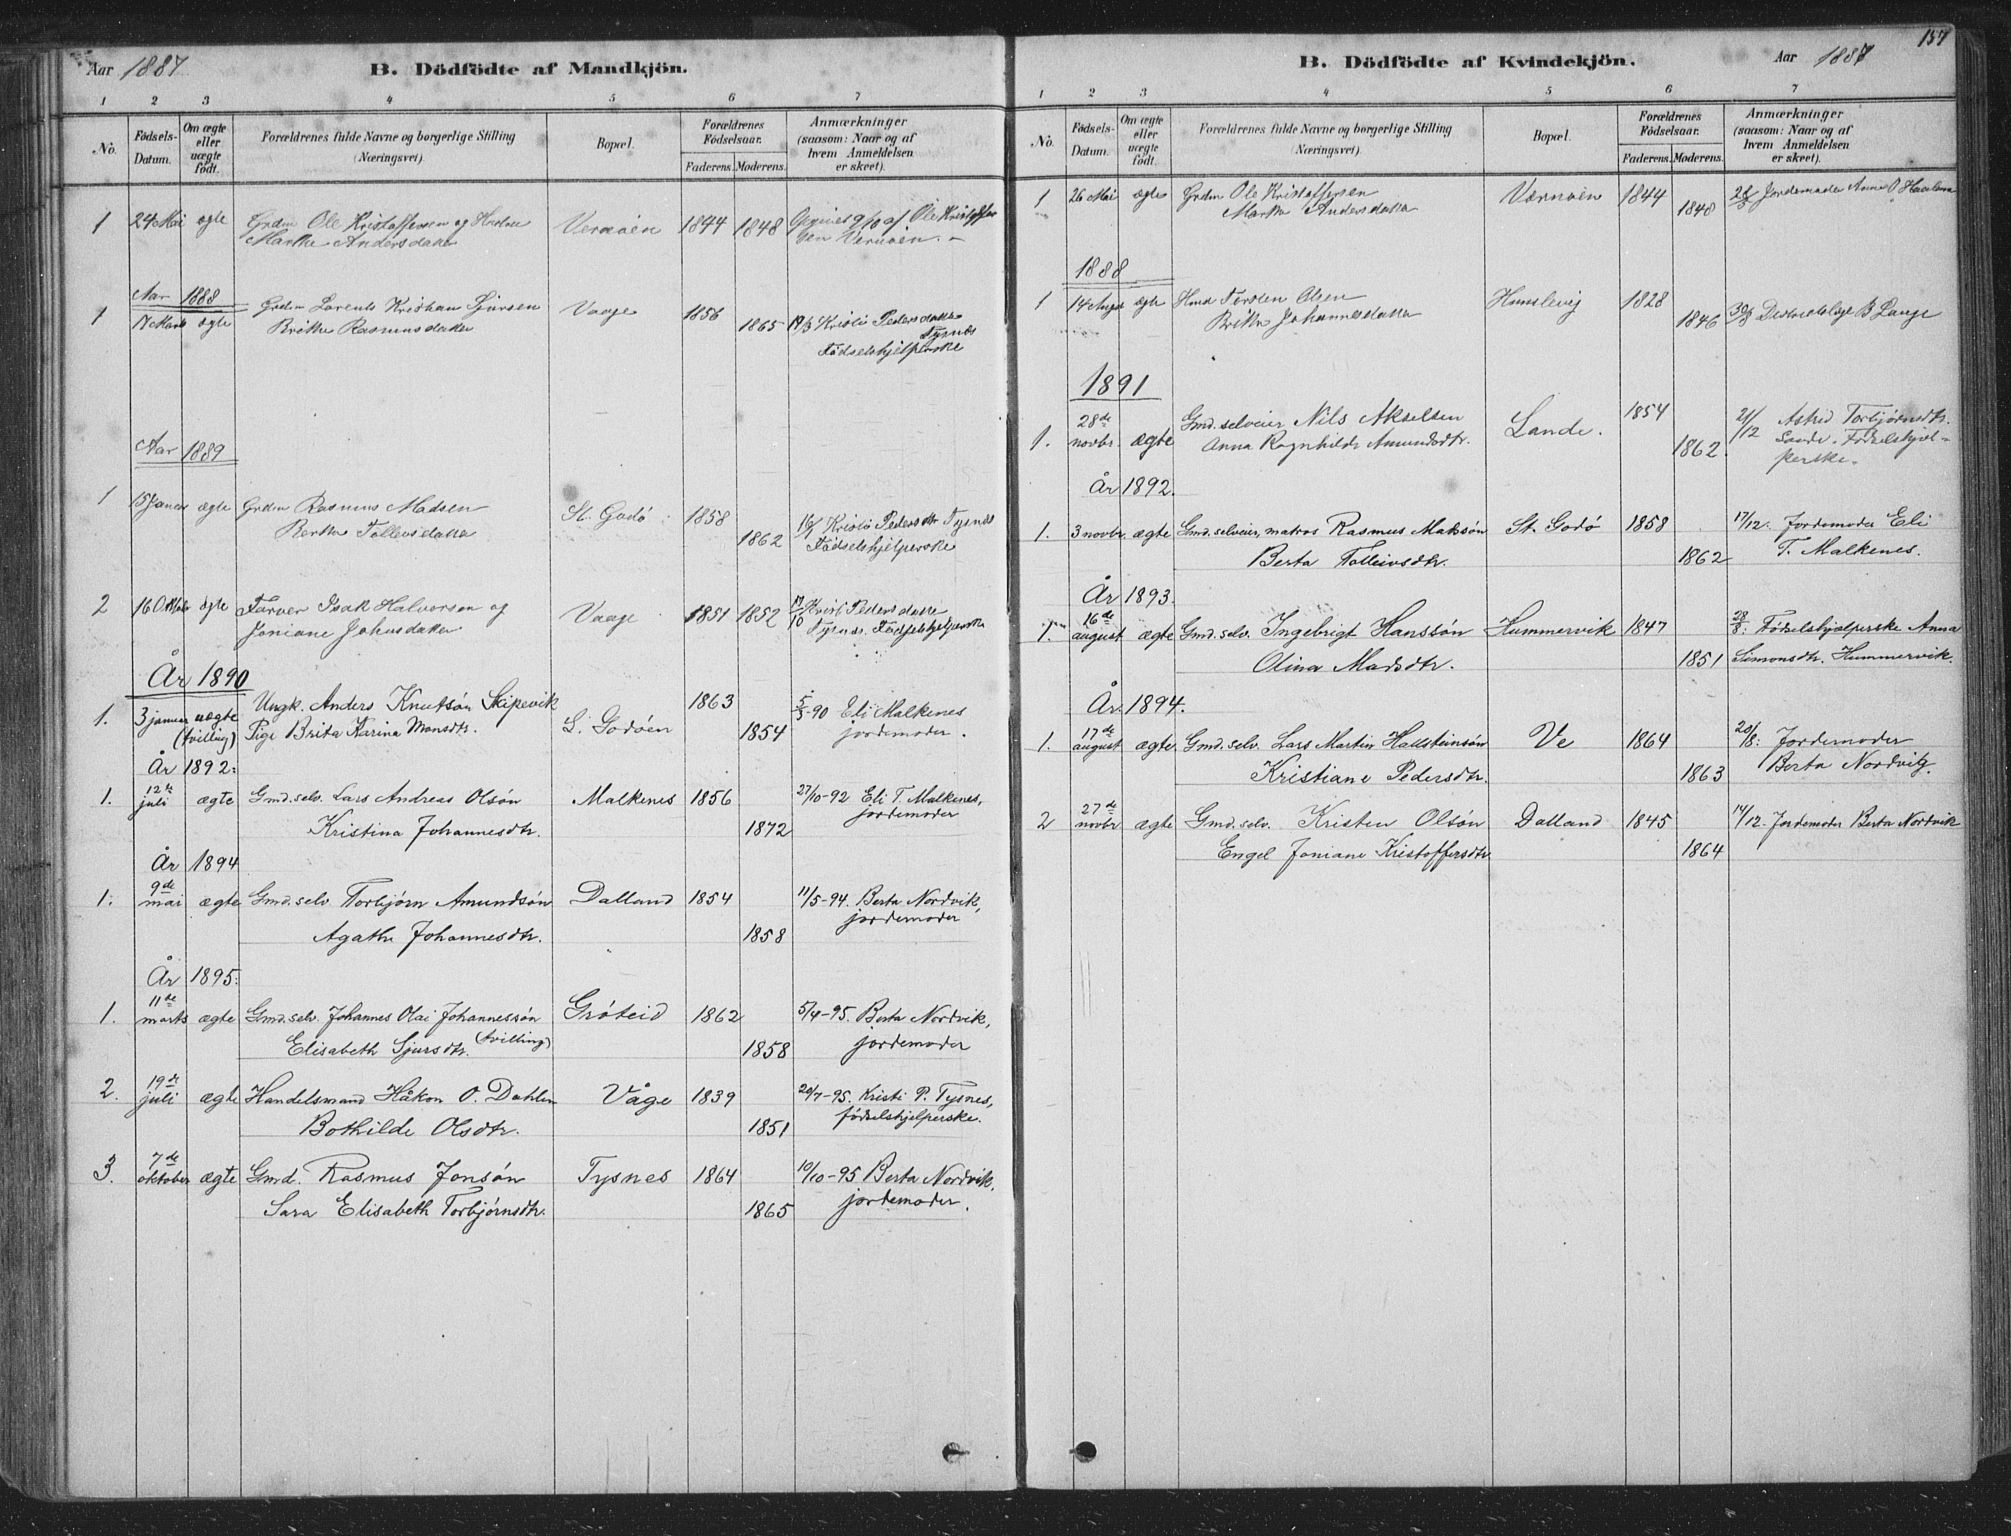 Aar 1887
B. Dödfödte af Mandkjön.
1 2 3 4 5 6 7
No. Födsels-Datum. Om ægte eller uægte födt. Forældrenes fulde Navne og borgerlige Stilling (Næringsvei). Bopæl. Forældrenes Födselsaar. Faderens. Moderens. Anmærkninger (saasom: Naar og af hvem Anmeldelsen er skeet).
1 24 Mai ægte Grdm Ole Kristoffersen og Hustru 1844 1848
Marthe Andersdatter
Aar 1888
1 17 Marts ægte Grdm Larents Kristian Sjursen Vaage 1856
Britha Rasmusdatter 1865 19/3 Kristi Pedersdatter
Tysnes
Fødselshjelperske
Aar 1889
1 15 Januar ægte Grdm Rasmus Madsen St. Godø 1858
Bertha Tollevsdatter 1862 16/1 Kristi Pedersdtr Tysnes
Fødselshjelperske
2 16 Oktober ægte Farver Isak Halvorsen og Vaage 1851 1852 17/10 Kristi Pedersdatter
Joniane Johnsdatter Tysnes. Fødselshjelperske
År 1890
1. 3 januar uægte Ungk. Anders Knutsøn Skipevik 1863 5/3-90 Eli Malkenes
(tvilling) Pige Brita Karina Monsdtr. L. Godøen 1854 jordemoder.
År 1892:
1. 12te juli ægte Gmd. selv. Lars Andreas Olsøn Malkenes 1856 27/10-92 Eli T. Malkenes,
jordemoder
Kristina Johannesdtr. 1872
År 1894
1. 9de mai ægte Gmd. selv. Torbjørn Amundsøn Dalland 1854 11/5-94. Berta Nordvik,
jordemoder
Agatha Johannesdtr. 1858
År 1895:
1. 11de marts ægte Gmd. selv. Johannes Olai Johannessøn Grøteid 1862 5/4-95. Berta Nordvik,
Elisabeth Sjursdtr. (tvilling) 1858 jordemoder
2. 19de juli ægte Handelsmand Håkon O. Dahlen Våge 1839 20/7-95. Kristi P. Tysnes,
fødselshjelperske.
Bothilde Olsdtr. 1851
3. 7de oktober ægte Gmd. Rasmus Jonsøn Tysnes 1864 10/10-95 Berta Nordvik,
jordemoder.
Sara Elisabeth Torbjørnsdtr. 1865
157
B. Dödfödte af Kvindekjön.
Aar 1887
1 2 3 4 5 6 7
No. Födsels-Datum. Om ægte eller uægte födt. Forældrenes fulde Navne og borgerlige Stilling (Næringsvei). Bopæl. Forældrenes Födselsaar. Faderens. Moderens. Anmærkninger (saasom: Naar og af hvem Anmeldelsen er skeet).
1 26 Mai ægte Grdm Ole Kristoffersen 1844 Jordemoder Anna O
Marthe Andersdatter 1848
1888
1 14 Augs ægte Hmd Torsten Olsen Hunslevig 1828
Britha Johannesdatter 1846 30/8 Distriktslæge B Lange
1891
1. 28de novbr. ægte Gmd. selveier Nils Akselsen Lande. 1854 21/12 Astrid Torbjørnsdtr.
Anna Ragnhilda Amundsdtr. 1862 Lande. Fødselshjel-
perske.
År 1892.
1. 3 novbr. ægte Gmd. selveier, matros Rasmus Matssøn St. Godø 1858 17/12. Jordemoder Eli
Berta Tolleivsdtr. 1862 T. Malkenes.
År 1893.
1. 16de august ægte Gmd. selv. Ingebrigt Hanssøn Hummervik 1847 28/8: Fødselshjelperske Anna
Olina Madsdtr. 1851 Simonsdtr. Hummervik.
År 1894.
1. 17de august ægte Gmd. selv. Lars Martin Hallsteinsøn Ve 1864 20/8: Jordemoder
Kristiane Pedersdtr. 1863 Berta Nordvig.
2 27de novbr ægte Gmd. selv. Kristen Olsøn Dalland 1845 14/12. Jordemoder Berta Nordvik
Engel Joniane Kristoffersdtr. 1864